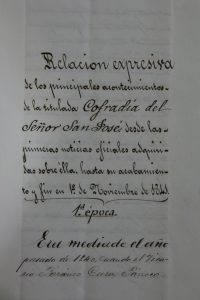 Relacion expresiva
de los principales acontecimientos
de la titulada Cofradía del
Señor San José desde las
primeras noticias oficiales adquiri-
das sobre ella, hasta su acabamien-
to y fin en 1º de Noviembre de
1ª época.
Era mediado el año
pasado de cuando el
Cura Párroco